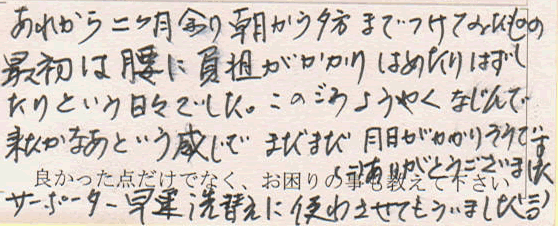 あれから二ヶ月余り朝から夕方までつけてみたものの
最初は腰に負担がかかりはめたりはずし
たりという日々でした。このごろようやくなじんで
来たかなあという感じでまだまだ月日がかかりそうです
ありがとうございました
良かった点だけでなく、お困りの事も教えて下さい
サーポーター早速洗替えに使わせてもらいました